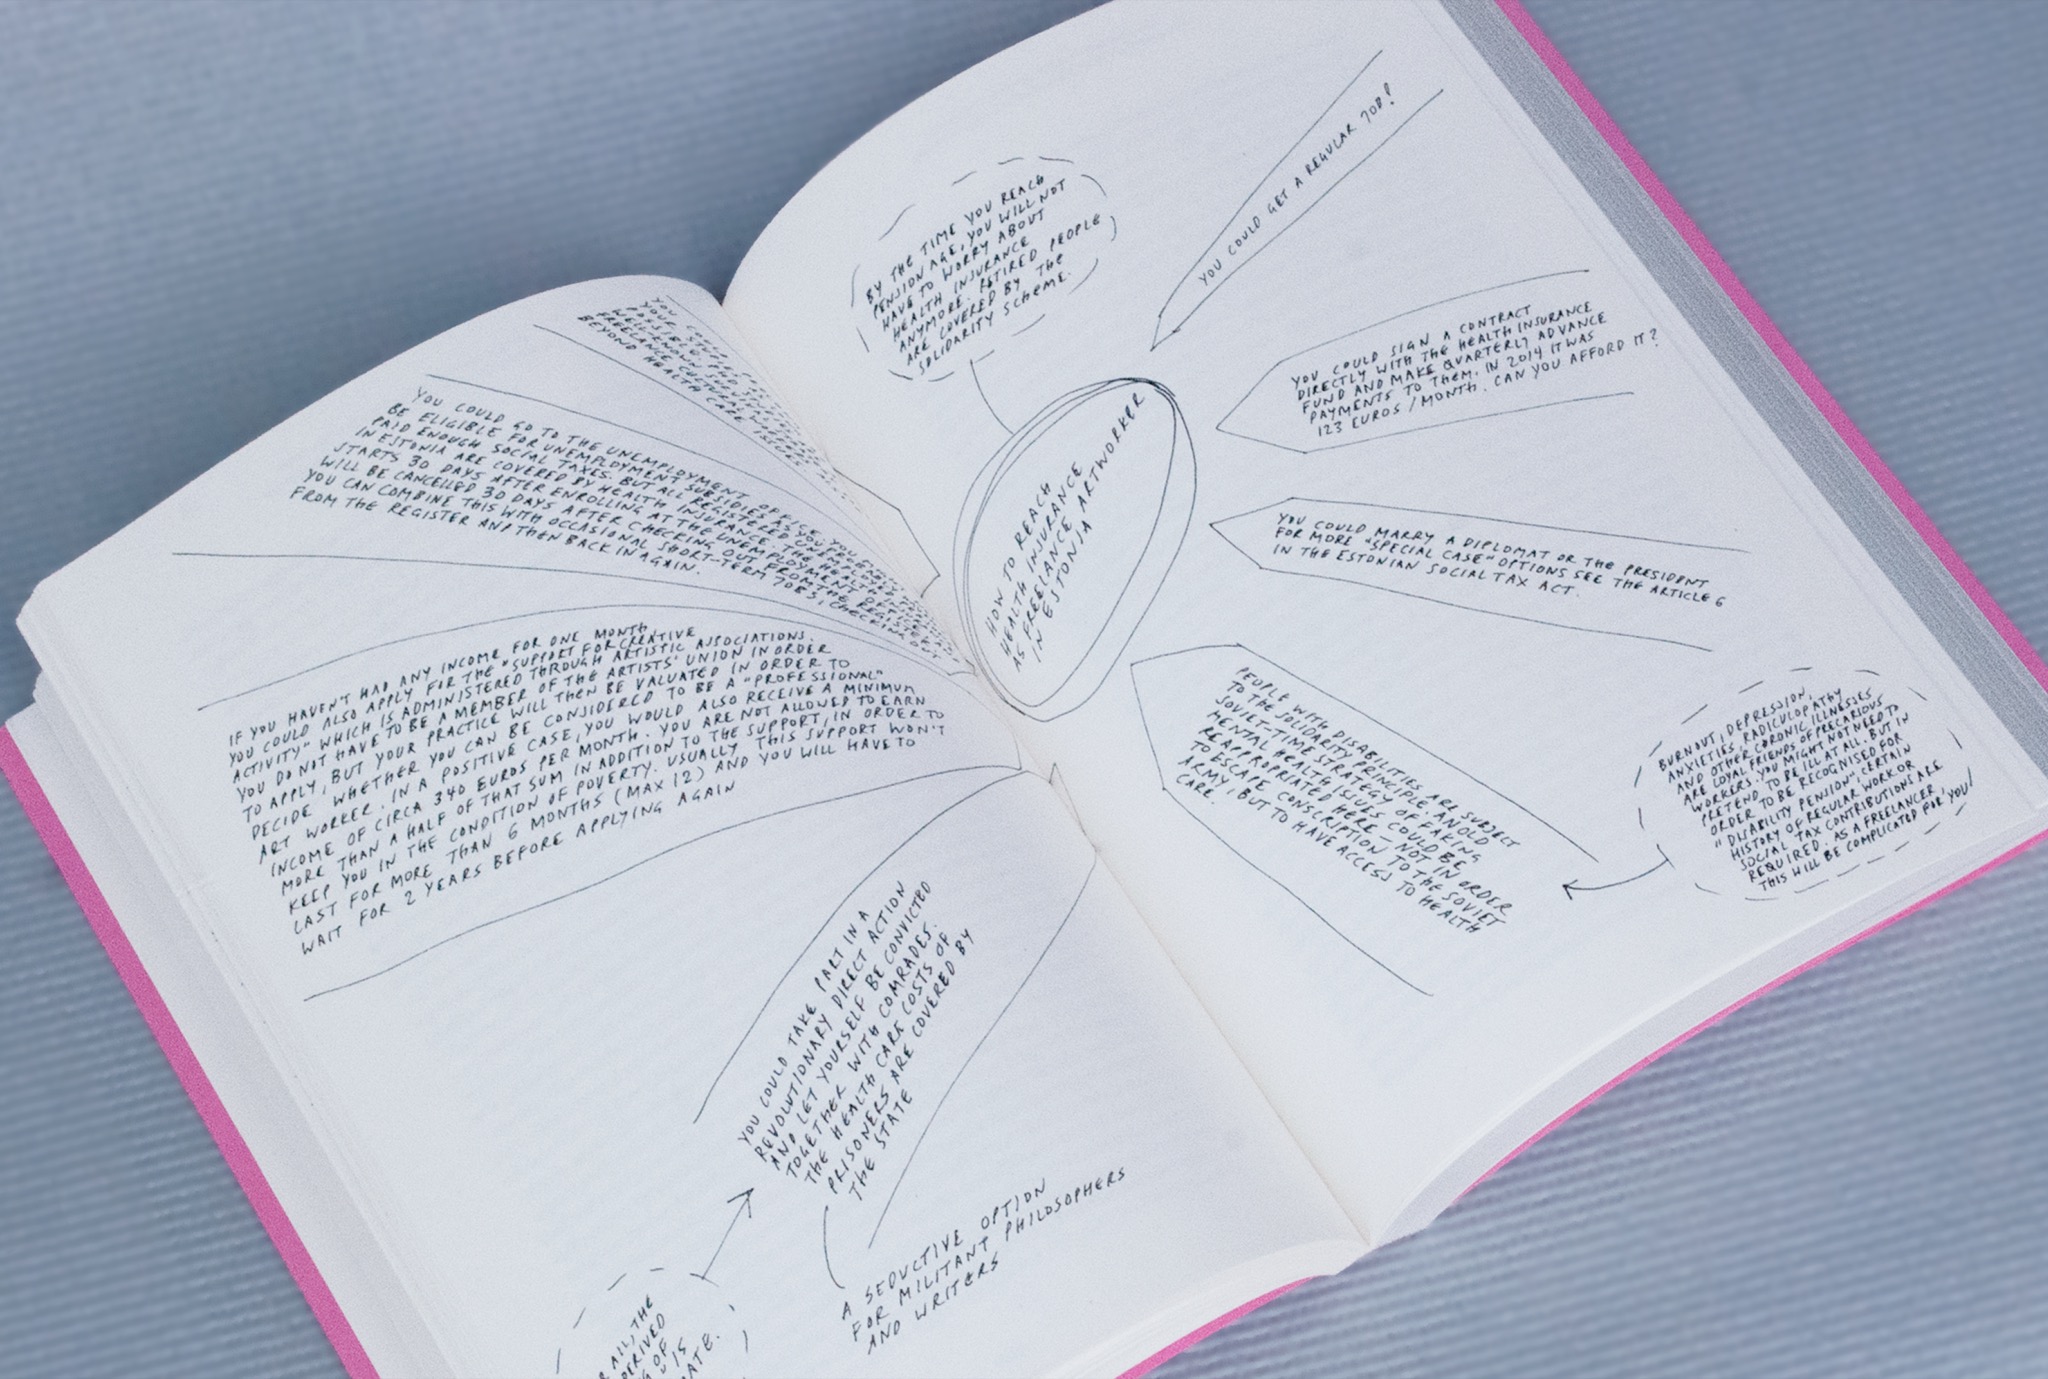 YOU COULD GO TO THE UNEMPLOYMENT OFFICE. YOU
BE ELIGIBLE FOR UNEMPLOYMENT SUBSIDIES AS
PAID ENOUGH SOCIAL TAXES. BUT ALL REGISTERED
IN ESTONIA ARE COVERED BY HEALTH INSURANCE. THE
STARTS 30 DAYS AFTER ENROLLING AT THE UNEMPLOYMENT
WILL BE CANCELLED 30 DAYS AFTER CHECKING OUT FROM THE
YOU CAN COMBINE THIS WITH OCCASIONAL SHORT-TERM JOBS, CHECKING OUT
FROM THE REGISTER AND THEN BACK IN AGAIN.
FREELANCE CULTURAL
BEYOND HEALTH CARE ISSUES
IF YOU HAVEN'T HAD ANY INCOME FOR ONE MONTH
YOU COULD ALSO APPLY FOR THE "SUPPORT FOR CREATIVE
ACTIVITY" WHICH IS ADMINISTERED THROUGH ARTISTIC ASSOCIATIONS.
YOU DO NOT HAVE TO BE A MEMBER OF THE ARTISTS' UNION IN ORDER
TO APPLY, BUT YOUR PRACTICE WILL THEN BE VALUATED IN ORDER TO
DECIDE WHETHER YOU CAN BE CONSIDERED TO BE A "PROFESSIONAL"
ART WORKER. IN A POSITIVE CASE, YOU WOULD ALSO RECEIVE A MINIMUM
INCOME OF CIRCA 340 EUROS PER MONTH. YOU ARE NOT ALLOWED TO EARN
MORE THAN A HALF OF THAT SUM IN ADDITION TO THE SUPPORT, IN ORDER TO
KEEP YOU IN THE CONDITION OF POVERTY. USUALLY THIS SUPPORT WON'T
LAST FOR MORE THAN 6 MONTHS (MAX 12) AND YOU WILL HAVE TO
WAIT FOR 2 YEARS BEFORE APPLYING AGAIN
YOU COULD TAKE PART IN A
REVOLUTIONARY DIRECT ACTION
AND LET YOURSELF BE CONVICTED
TOGETHER WITH COMRADES.
THE HEALTH CARE COSTS OF
PRISONERS ARE COVERED BY
THE STATE
A SEDUCTIVE OPTION
FOR MILITANT PHILOSOPHERS
AND WRITERS
ALL, THE
DERIVED
OF
IS
BY THE TIME YOU REACH
PENSION AGE, YOU WILL NOT
HAVE TO WORRY ABOUT
HEALTH INSURANCE
ANYMORE. RETIRED PEOPLE
ARE COVERED BY THE
SOLIDARITY SCHEME.
HOW TO REACH
HEALTH INSURANCE
AS FREELANCE ARTWORKER
IN ESTONIA
YOU COULD GET A REGULAR JOB!
YOU COULD SIGN A CONTRACT
DIRECTLY WITH THE HEALTH INSURANCE
FUND AND MAKE QUARTERLY ADVANCE
PAYMENTS TO THEM. IN 2014 IT WAS
123 EUROS / MONTH. CAN YOU AFFORD IT?
YOU COULD MARRY A DIPLOMAT OR THE PRESIDENT
FOR MORE "SPECIAL CASE" OPTIONS SEE THE ARTICLE 6
IN THE ESTONIAN SOCIAL TAX ACT.
PEOPLE WITH DISABILITIES ARE SUBJECT
TO THE SOLIDARITY PRINCIPLE. AN OLD
SOVIET-TIME STRATEGY OF FAKING
MENTAL HEALTH ISSUES COULD BE
REAPPROPRIATED HERE – NOT IN ORDER
TO ESCAPE CONSCRIPTION TO THE SOVIET
ARMY, BUT TO HAVE ACCESS TO HEALTH
CARE.
BURNOUT, DEPRESSION,
ANXIETIES, RADICULOPATHY
AND OTHER CORONIC ILLNESSES
ARE LOYAL FRIENDS OF PRECARIOUS
WORKERS. YOU MIGHT NOT NEED TO
PRETEND TO BE ILL AT ALL. BUT IN
ORDER TO BE RECOGNISED FOR
"DISABILITY PENSION", CERTAIN
HISTORY OF REGULAR WORK OR
SOCIAL TAX CONTRIBUTIONS ARE
REQUIRED. AS A FREELANCER,
THIS WILL BE COMPLICATED FOR YOU